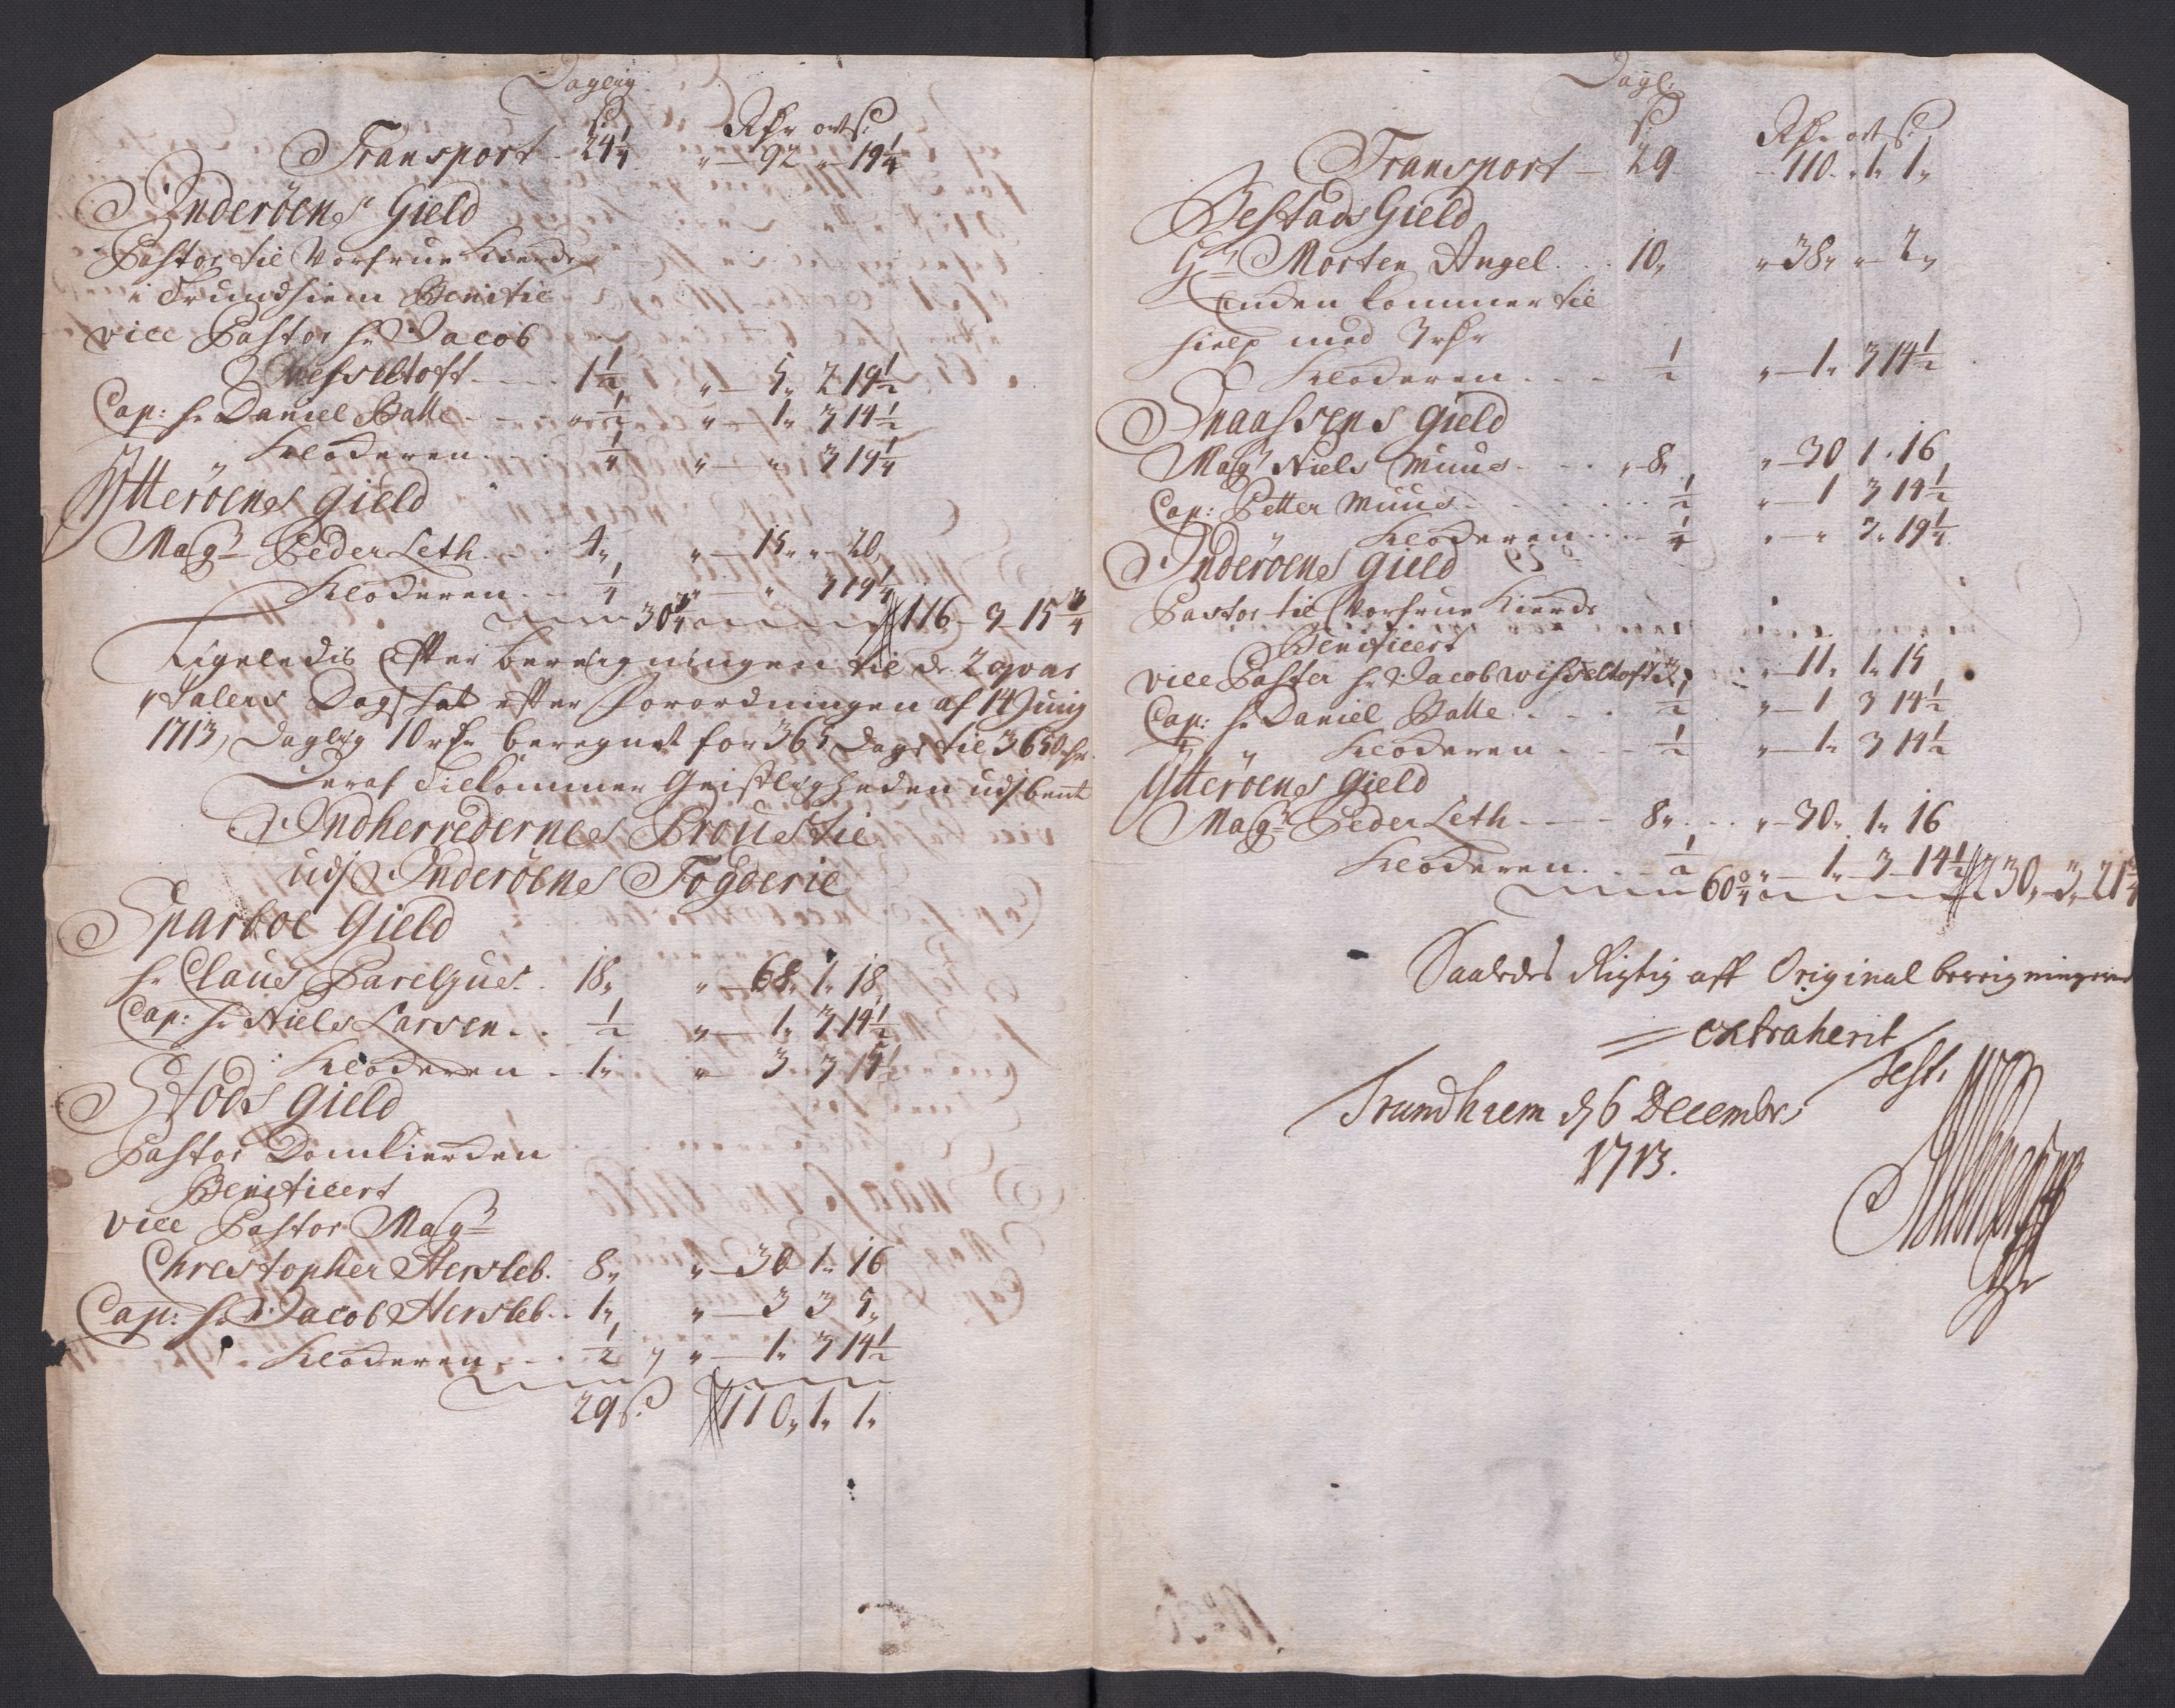 Daglig
s. Rdr ort s.
Transport 24 1/4 " 92 " 19 1/4
Inderöens Gield
Pastor til Vorfrue Kierche
i Trundhiem Benificie
vice Pastor hr Jacob
Wesseltoft 1 1/2 " 5 " 2 19 1/2
Cap: hr Daniel Balle " 1/2 " 1 " 3 14 1/2
" Klocheren 1/4 " " 3 19 1/4
Ytteröens gield
Magr Peder Leth 4 " " 15 " " 20
Klocheren 1/4 " " 3 19 1/4
30 3/4 116 - 3 - 15 3/4
Ligeledis Efter bereigningen til de 2 qvar
talers Dagskat efter forordningen af 14 Junij
1713, Daglig 10 rdr beregnet for 365 Dage til 3650 rdr.
Deraf tilkommer Geistligheden udj bent
Indherredernes Proustie
udj Inderöens Fogderie
Sparboe Gield
hr Claus Parelius 18 " " 68 " 1 " 18
Cap: hr Niels Larsen 1/2 " 1 " 3 14 1/2
Klocheren 1 " " 3 3 5 "
Stods gield
Pastor Domkierchen
Benificert
vice Pastor Magr
Christopher Hersleb 8 " " 30 1 " 16
Cap: hr Jacob Hersleb 1 " " 3 3 5 "
Klocheren 1/2 " 1 " 3 14 1/2
29 s. 110 " 1 " 1 "
Dagl:
s. Rdr ort s.
Transport 29 110 " 1 " 1 "
Bestads Gield
Hr Morten Angel 10 " " 38 " " 2 "
Enden kommer til
hielp med 3 rdr
Klocheren 1/2 " 1 " 3 14 1/2
Snaasens gield
Magr Niels Muus " 8 " " 30 1 " 16
Cap: Petter Muus 1/2 " 1 3 14 1/2
Klocheren 1/4 " " 3 " 19 1/4
Inderöens gield
Pastor til Vorfrue Kierche
Benificert
vice Pastor hr Jacob Wisseltoft 3 " " 11 " 1 " 15
Cap: hr Daniel Balle 1/2 " 1 3 14 1/2
" Klocheren 1/2 " 1 " 3 14 1/2
Ytteröens gield
Magr Peder Leth 8 " " 30 " 1 " 16
Klocheren 1/2 " 1 " 3 14 1/2
60 0/4 230 " 3 " 21 3/4
Saaledes Rigtig aff Original bereigningerne
extraherit
Test:
Trundhiem d. 6 Decembr:
1713.